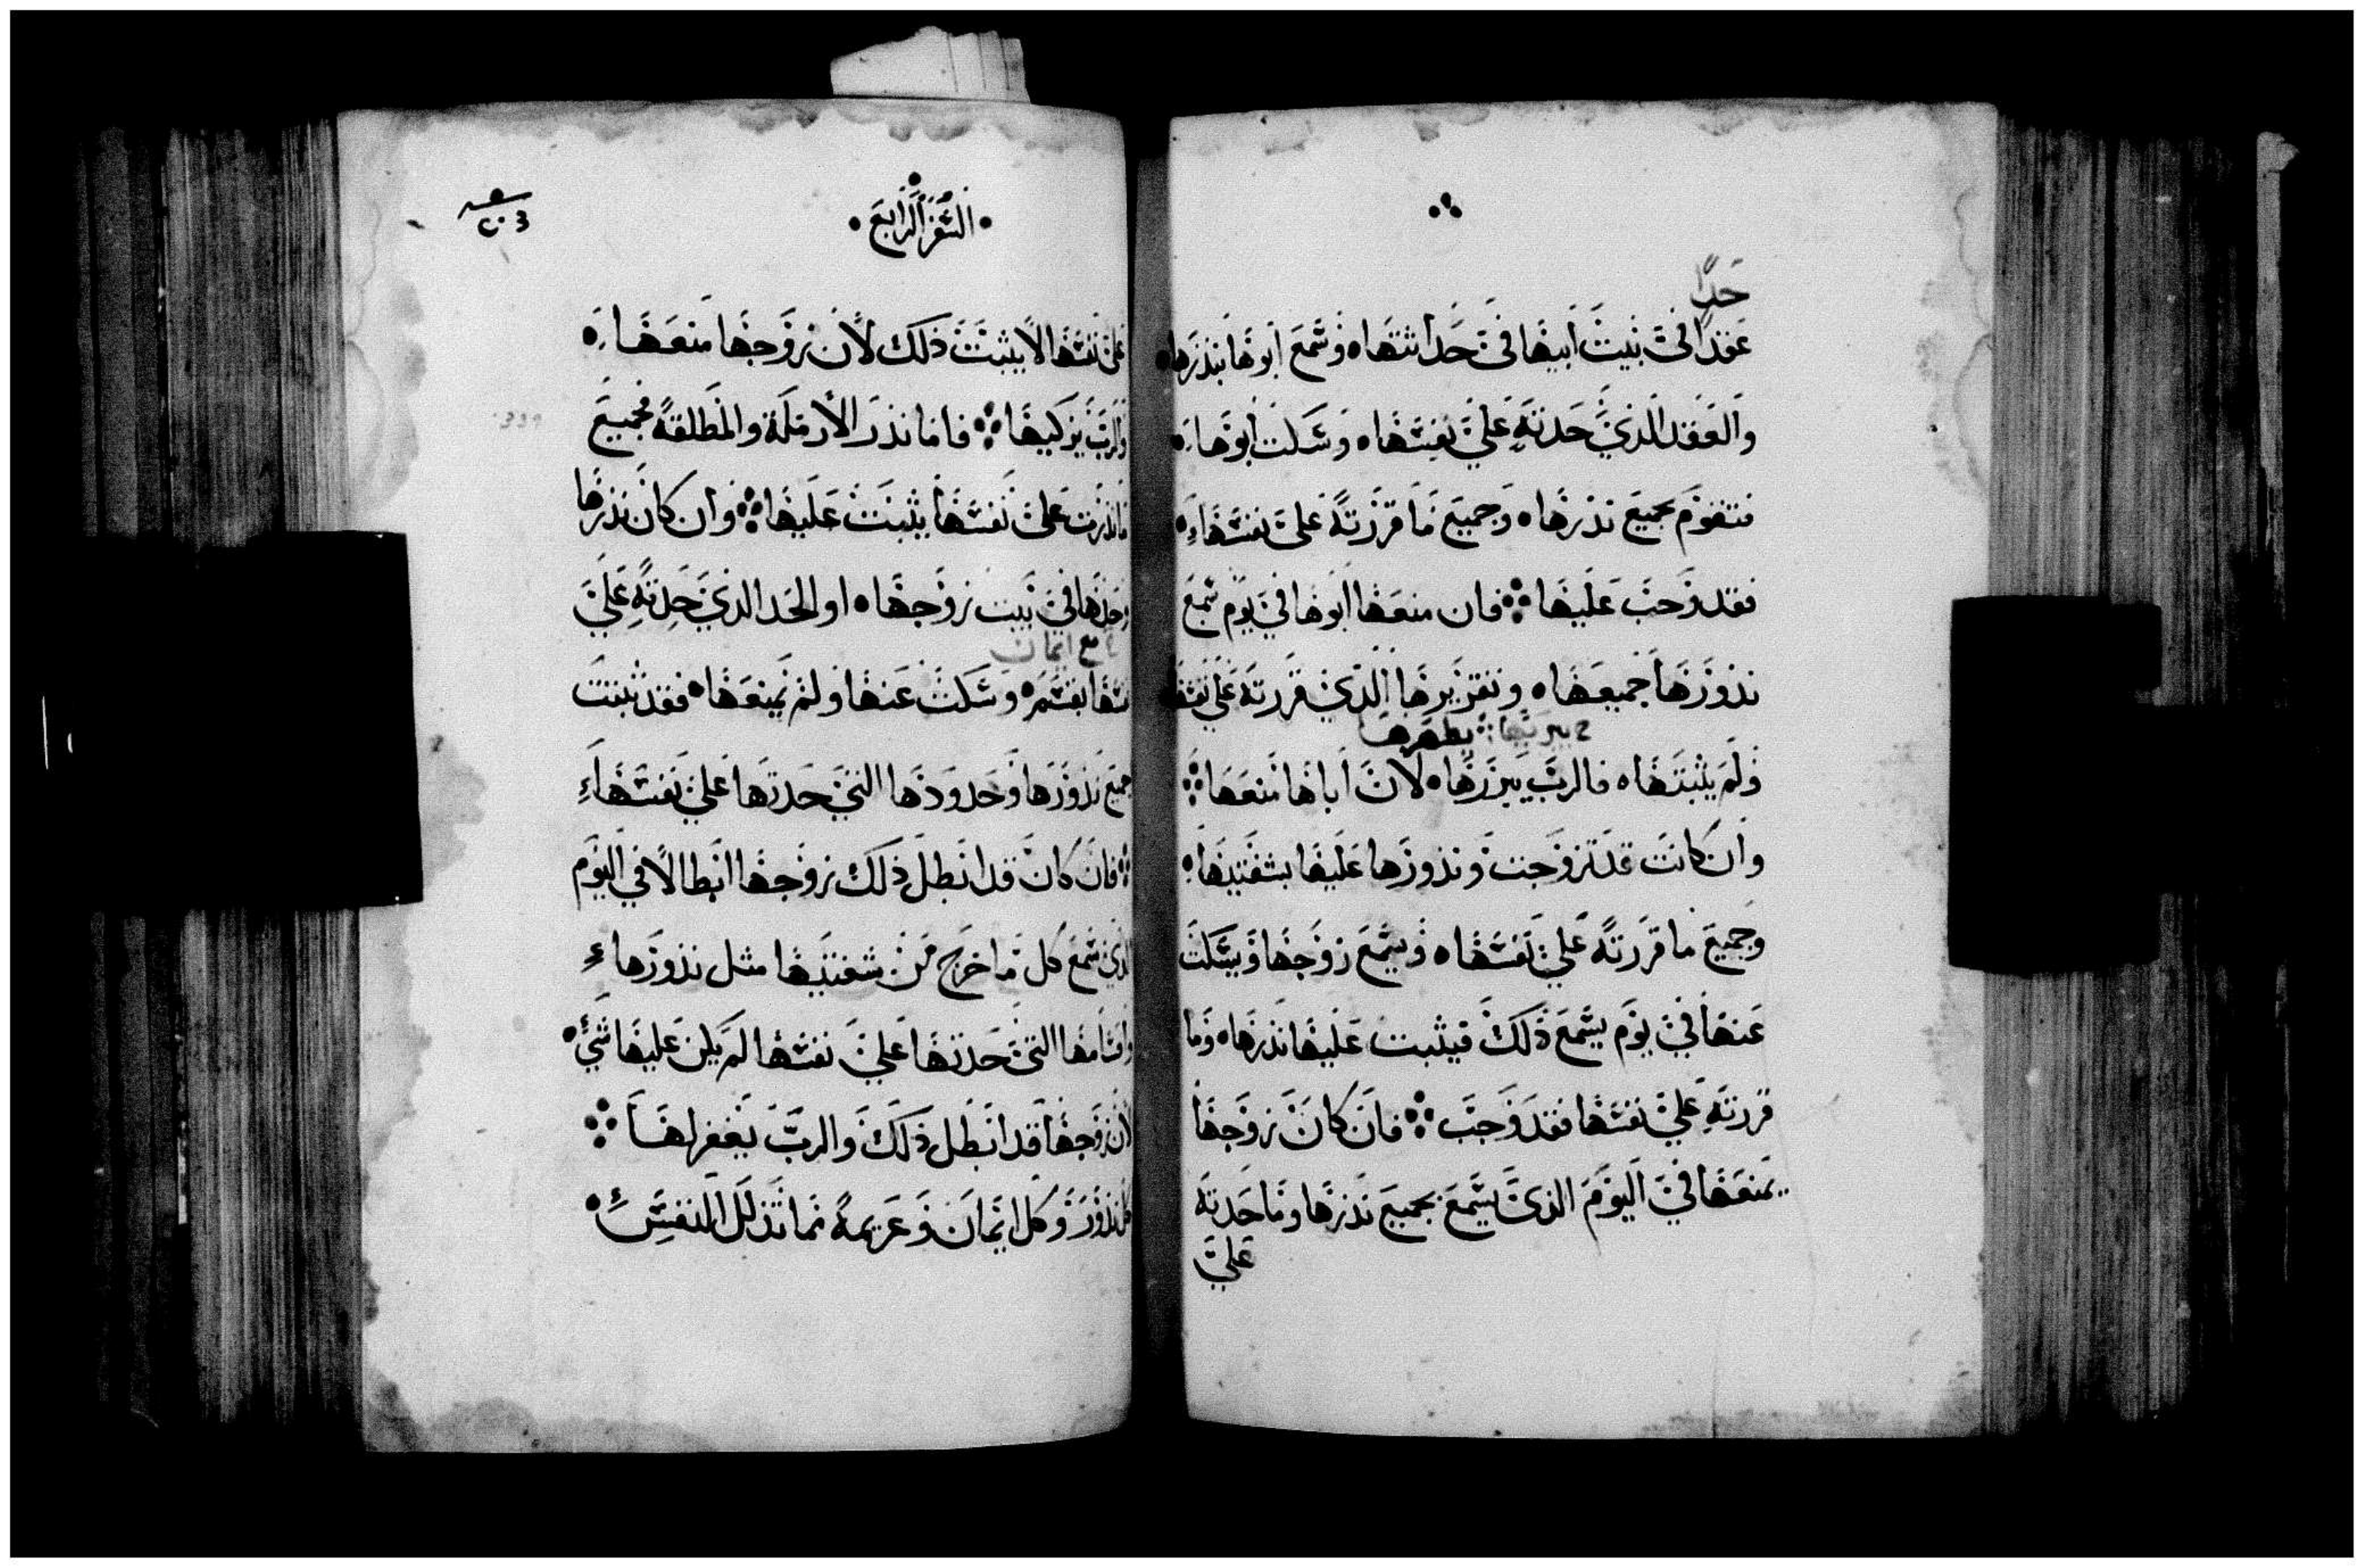 حدًا
عقدا في بيت ابيها في حداثتها وسمع ابوها بنذرها
والعقد الذي حدته علي نفسها وسكت ابوها
فتقوم بجميع نذرها وجميع ما قررته علي نفسها
فقد وجب عليها فان منعها ابوها في يوم سمع
نذورها جميعها وتقريرها الذي قررته علي نفسها
يطهرها
ولم يثبتها فالرب يبررها لان اباها منعها
وان كانت قد تزوجت ونذورها عليها بشفتيها
وجميع ما قررته علي نفسها ويسمع زوجها ويسكت
عنها في يوم يسمع ذلك فيثبت عليها نذرها وما
قررته علي نفسها فقد وجب فان كان زوجها
يمنعها في اليوم الذي يسمع بجميع نذرها وما حدته
علي
السفر الرابع
علي نفسها لا يثبت ذلك لان زوجها منعها
والرب يزكيها فاما نذر الارملة والمطلقة فجميع
ما نذرت علي نفسها يثبت عليها وان كان نذرها
وحدها في بيت زوجها او الحد الذي حدته علي
مع ايمان
نفسها بقسم وسكت عنها ولم يمنعها فقد ثبتت
جميع نذورها وحدودها التي حدتها علي نفسها
فان كان قد ابطل ذلك زوجها ابطالا في اليوم
الذي سمع كل ما خرج من شفتيها مثل نذورها
واقسامها التي حدتها علي نفسها لم يكن عليها شيء
لان زوجها قد ابطل ذلك والرب يغفر لها
كل نذور وكل ايمان وعزيمة مما تذلل النفس